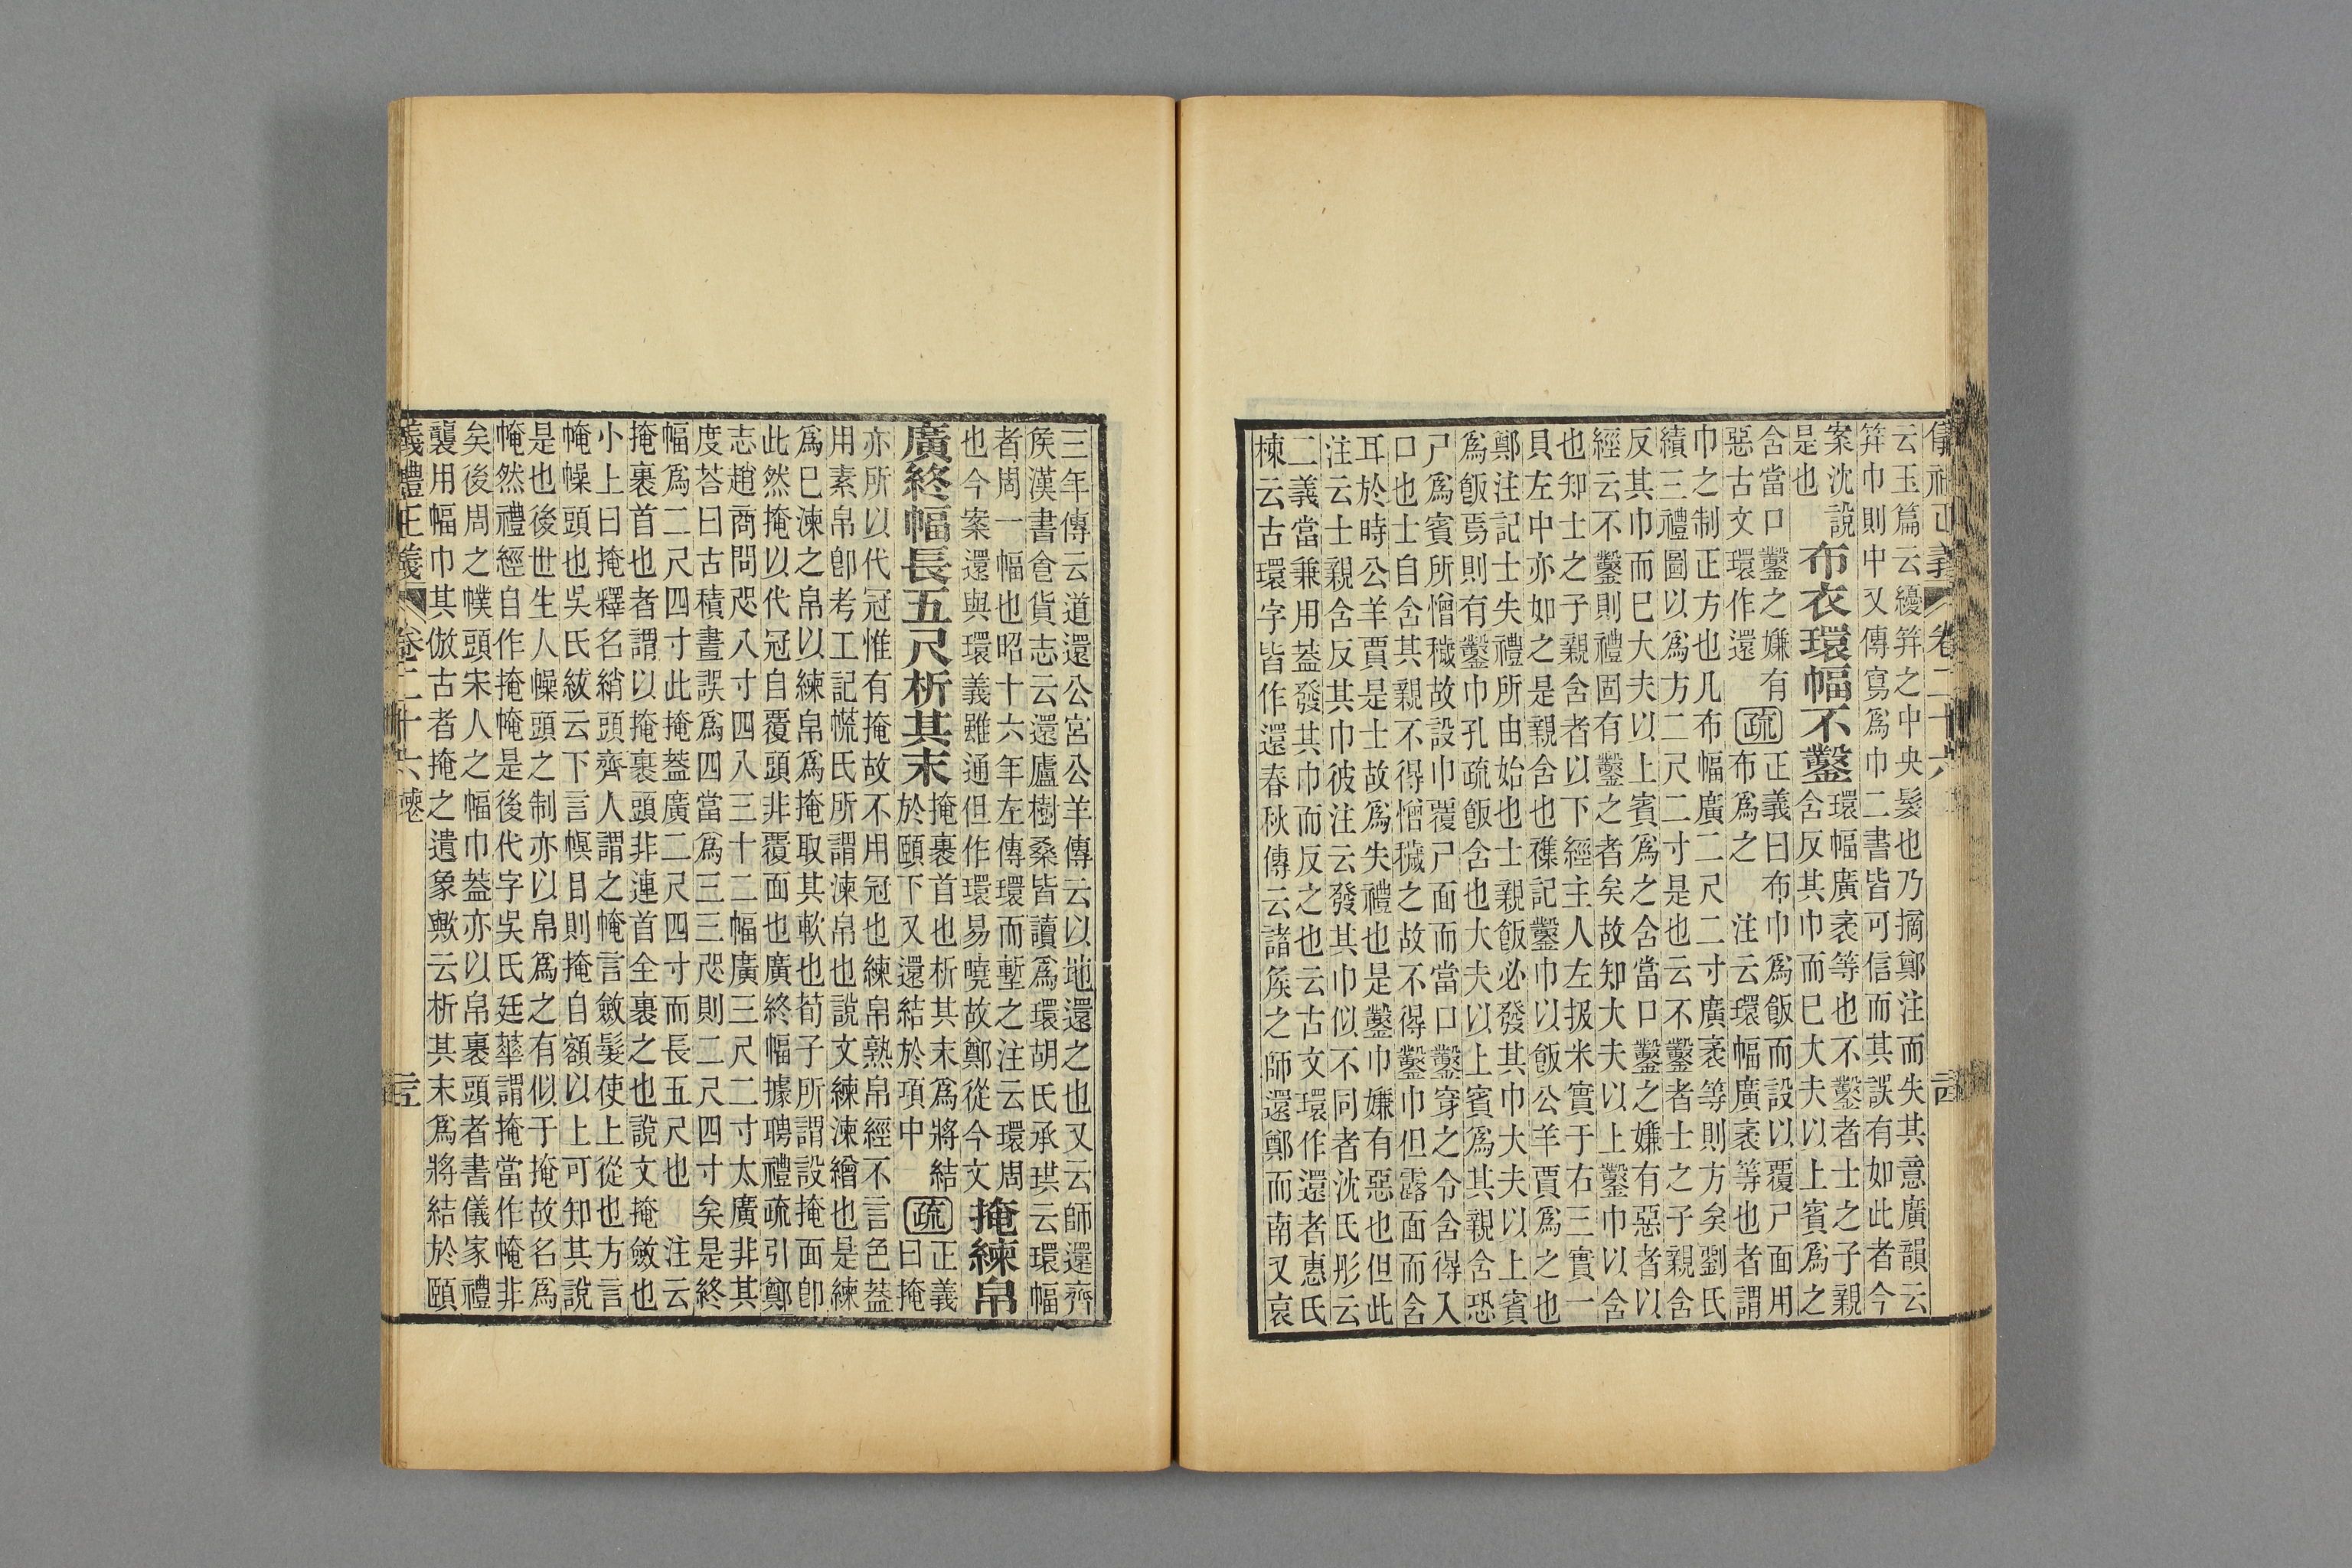 儀禮正義 卷二十六 言
云玉篇云纋筓之中央髮也乃摘鄭注而失其意廣韻云
筓巾則中又傳寫爲巾二書皆可信而其誤有如此者今
案沈說
是也
布衣環幅不鑿
環幅廣袤等也不鑿者士之子親
含反其巾而已大夫以上賓爲之
含當口鑿之嫌有
惡古文環作還
疏
正義曰布巾爲飯而設以覆尸面用
布爲之 注云環幅廣袤等也者謂
巾之制正方也凡布幅廣二尺二寸廣袤等則方矣劉氏
績三禮圖以爲方二尺二寸是也云不鑿者士之子親含
反其巾而已大夫以上賓爲之含當口鑿之嫌有惡者以
經云不鑿則禮固有鑿之者矣故知大夫以上鑿巾以含
也知士之子親含者以下經主人左扱米實于右三實一
貝左中亦如之是親含也襍記鑿巾以飯公羊賈爲之也
鄭注記士失禮所由始也士親飯必發其巾大夫以上賓
爲飯焉則有鑿巾孔疏飯含也大夫以上賓爲其親含恐
尸爲賓所憎穢故設巾覆尸面而當口鑿穿之令含得入
口也士自含其親不得憎穢之故不得鑿巾但露面而含
耳於時公羊賈是士故爲失禮也是鑿巾嫌有惡也但此
注云士親含反其巾彼注云發其巾似不同者沈氏彤云
二義當兼用葢發其巾而反之也云古文環作還者惠氏
棟云古環字皆作還春秋傳云諸矦之師還鄭而南又哀
三年傳云道還公宮公羊傳云以地還之也又云師還齊
矦漢書食貨志云還廬樹桑皆讀爲環胡氏承珙云環幅
者周一幅也昭十六年左傳環而塹之注云環周
也今案還與環義雖通但作環易曉故鄭從今文
掩練帛
廣終幅長五尺析其末
掩裹首也析其末爲將結
於頤下又還結於項中
疏
正義
曰掩
亦所以代冠惟有掩故不用冠也練帛熟帛經不言色葢
用素帛卽考工記㡛氏所謂湅帛也說文練湅繒也是練
爲已湅之帛以練帛爲掩取其軟也荀子所謂設掩面卽
此然掩以代冠自覆頭非覆面也廣終幅據聘禮疏引鄭
志趙商問咫八寸四八三十二幅廣三尺二寸太廣非其
度荅曰古積畫誤爲四當爲三三咫則二尺四寸矣是終
幅爲二尺四寸此掩葢廣二尺四寸而長五尺也 注云
掩裹首也者謂以掩裹頭非連首全裹之也說文掩斂也
小上曰掩釋名綃頭齊人謂之㡋言斂髮使上從也方言
㡋幧頭也吳氏紱云下言幎目則掩自額以上可知其說
是也後世生人幧頭之制亦以帛爲之有似于掩故名爲
㡋然禮經自作掩㡋是後代字吳氏廷華謂掩當作㡋非
矣後周之幞頭宋人之幅巾葢亦以帛裹頭者書儀家禮
襲用幅巾其倣古者掩之遺象歟云析其末爲將結於頤
義禮正義 卷二十六